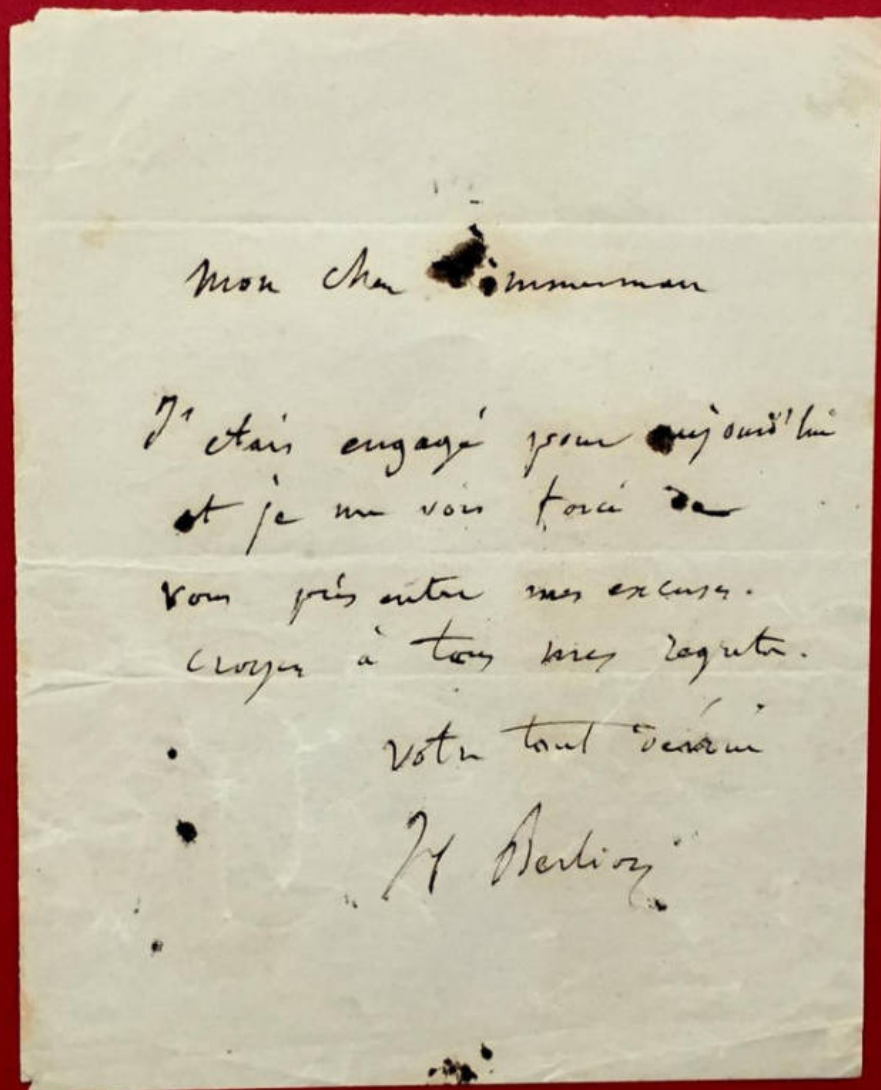 Mon cher Zimmerman
J'étais engagé pour aujourd'hui
et je me vois forcé de
vous présenter mes excuses.
Croyez à tous mes regrets.
Votre tout dévoué
H Berlioz